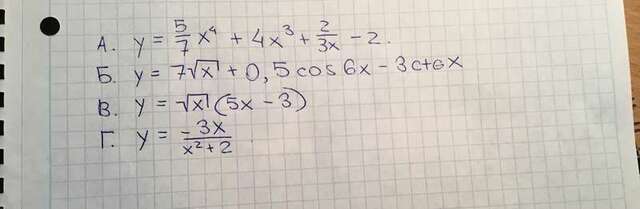 А. y = 5/7 x⁴ + 4x³ + 2/3x - 2.
Б. y = 7√x + 0,5cos6x - 3ctgx
В. y = √x (5x - 3)
Г. y = -3x/x²+2